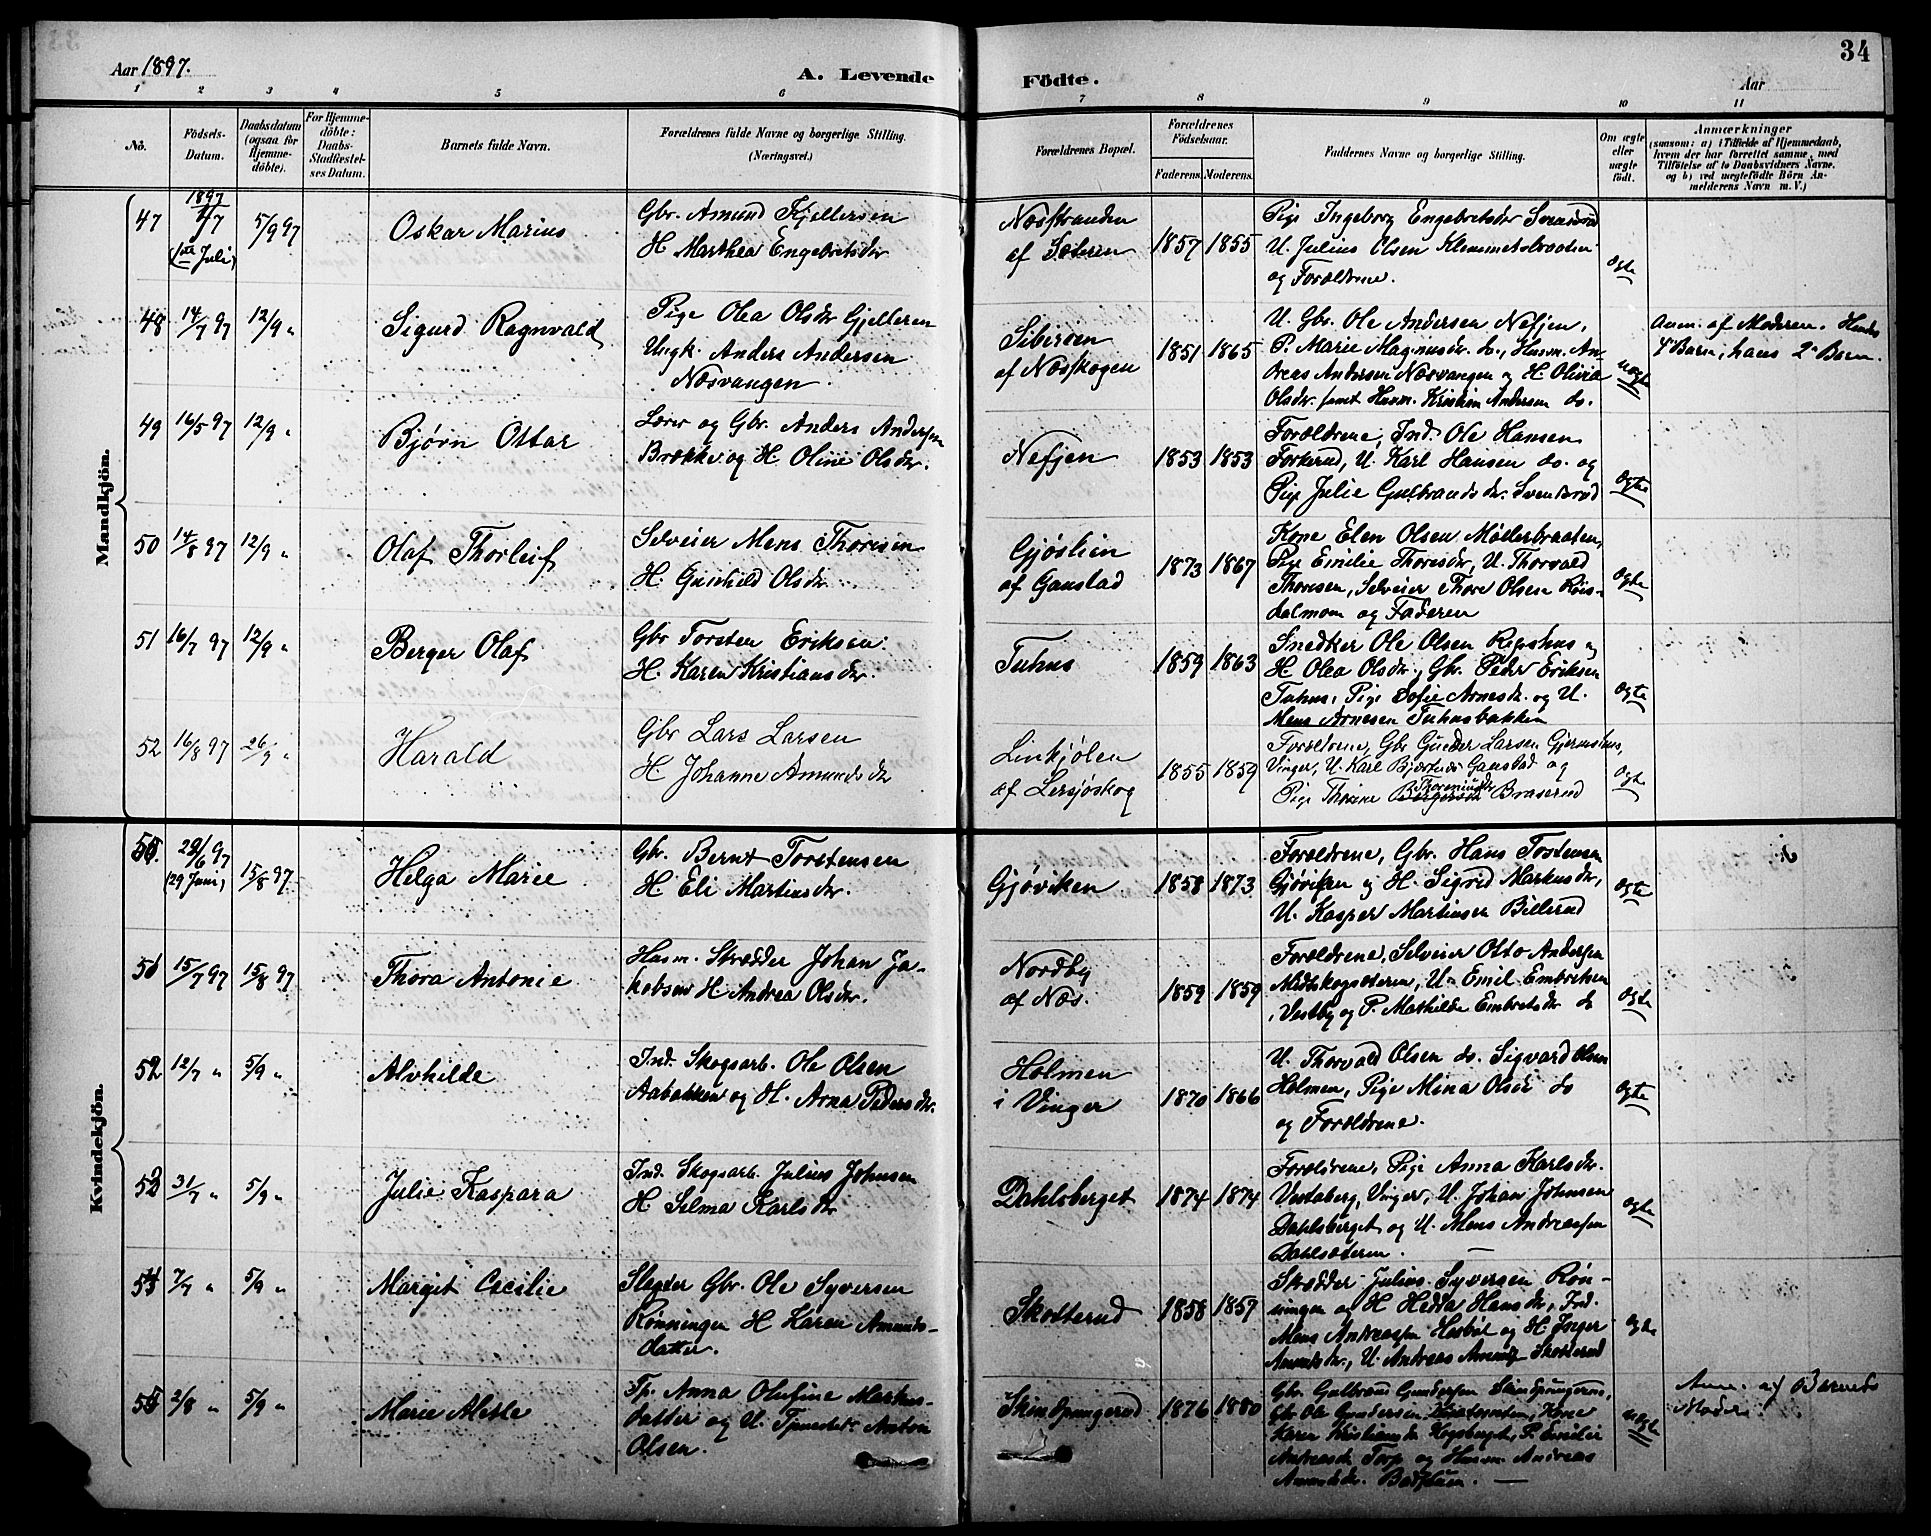 34
Aar 1897.
A. Levende Födte.
Aar
1 2 3 4 5 6 7 8 9 10 11
No.
Födsels-
Datum.
Daabsdatum
(ogsaa for
Hjemme-
döbte).
For Hjemme-
döbte:
Daabs-
Stadfæstel-
ses Datum.
Barnets fulde Navn.
Forældrenes fulde Navne og borgerlige Stilling.
(Næringsvei.)
Forældrenes Bopæl.
Forældrenes
Födselsaar.
Faderens. Moderens.
Faddernes Navne og borgerlige Stilling.
Om ægte
eller
uægte
födt.
Anmærkninger
(saasom: a) i Tilfælde af Hjemmedaab,
hvem der har forrettet samme, med
Tilföielse af to Daabsvidners Navne,
og b) ved uægtefödte Börn An-
melderens Navn m. V.)
Mandkjön.
47
1897
1/7
(1ste Juli)
5/9 97
Oskar Marius
Gbr. Amund Kjellersen
H. Marthea Engebretsdr
Næsstranden
af Sæteren
1857 1855
Pige Ingeborg Engebretsdr
U. Julius Olsen Klemmetsbraaten
og Forældrene.
ægte
48
14/7 97
12/9 "
Sigurd Ragnvald
Pige Olea Olsdr Gjelleren
Ungk. Anders Andersen
Næsvangen.
Sibirien
af Næsskogen
1851 1865
U. Gbr. Ole Andersen Nefjen,
P. Marie Magnusdr. do., Husm. An-
dreas Andersen Næsvangen og H. Olivia
Olsdr. samt Husm. Kristian Andersen do.
uægte
Anm. af Moderen. Hendes
4de Barn, hans 2det Barn.
49
16/5 97
12/9 "
Bjørn Ottar
Lærer og Gbr. Anders Andersen
Brække og H. Oline Olsdr.
Nefjen
1853 1853
Forældrene, Ind. Ole Hansen
Forkerud, U. Karl Hansen do. og
Pige Julie Gulbrandsdr. Svensbrød
ægte
50
14/8 97
12/9 "
Olaf Thorleif
Selveier Mens Thoresen
H. Gunhild Olsdr
Gjøslien
af Ganstad
1873 1867
Kone Elen Olsen Møllerbraaten,
Pige Emilie Thoresdr, U. Thorvald
Thoresen, Selveier Thore Olsen Røis-
dalmoen og Faderen
ægte
51
16/7 97
12/9 "
Berger Olaf
Gbr Torsten Eriksen
H. Karen Kristiansdr.
Tuhus
1859 1863
Snedker Ole Olsen Repshus og
H. Olea Olsdr., Gbr. Peder Eriksen
Tuhus, Pige Sofie Arnesdr. og U.
Mens Arnesen Tuhusbakken
ægte
52
16/8 97
26/9 "
Harald
Gbr Lars Larsen
H. Johanne Amundsdr
Linkjølen
af Lersjøskog
1855 1859
Forældrene, Gbr Gudder Larsen
Vinger, U. Karl Bjørnes Ganstad og
Pige Thorine Braserud
ægte
Kvindekjön.
50.
29/6 97
(29 Juni)
15/8 97
Helga Marie
Gbr. Bernt Torstensen
H. Eli Martinsdr.
Gjøviken
1858 1873
Forældrene, Gbr. Hans Torstensen
Gjøviken og H. Sigrid Markusdr,
U. Kasper Martinsen Billerud
ægte
51
15/7 97
15/8 97
Thora Antonie
Husm. Skrædder Johan Ja-
kobsen H. Andrea Olsdr.
Nordby
af Næs.
1859 1859
Forældrene, Selveier Otto Andersen
Midtskogsæteren, U. Emil Embriksen
Vestby og P. Mathilde Embretsdr do
ægte
52
12/7 "
5/9 "
Alvhilde
Ind. Skogsarb. Ole Olsen
Aabakken og H. Arna Pedersdr.
Holmen
i Vinger
1870 1866
U. Thorvald Olsen do. Sigvard Olsen
Holmen, Pige Mina Olsdr do
og Forældrene.
ægte
53
31/7 "
5/9 "
Julie Kaspara
Ind. Skogsarb. Julius Johnsen
H. Selma Karlsdr
Dahlsberget
1874 1874
Forældrene, Pige Anna Karlsdr.
Vestaberg, Vinger, U. Johan Johnsen
Dahlsberget og U. Mens Andreassen
Dahlsæteren.
ægte
54
7/7 "
5/9 "
Margit Cecilie
Slagter Gbr. Ole Syversen
Rønningen H Karen Amunds-
datter.
Skotterud
1858 1857
Skrædder Julius Syversen Røn-
ningen og H Hedda Hansdr, Ind.
Mens Andreassen og H. Inger
Amundsdr, U. Andreas Skotterud
ægte
55
2/8 "
5/9 "
Marie Alette
Tp. Anna Olufine Markus-
datter og U. Tjenestek. Anton
Olsen.
Skindpungerud
1876 1880
Gbr. Gulbrand Gundersen
Gbr Ole Gundersen, Kone
Karen Kristiansdr, P. Emilie
Andreasdr Torp og Husm. Andreas
uægte
Anm. af Barnets
Moder.